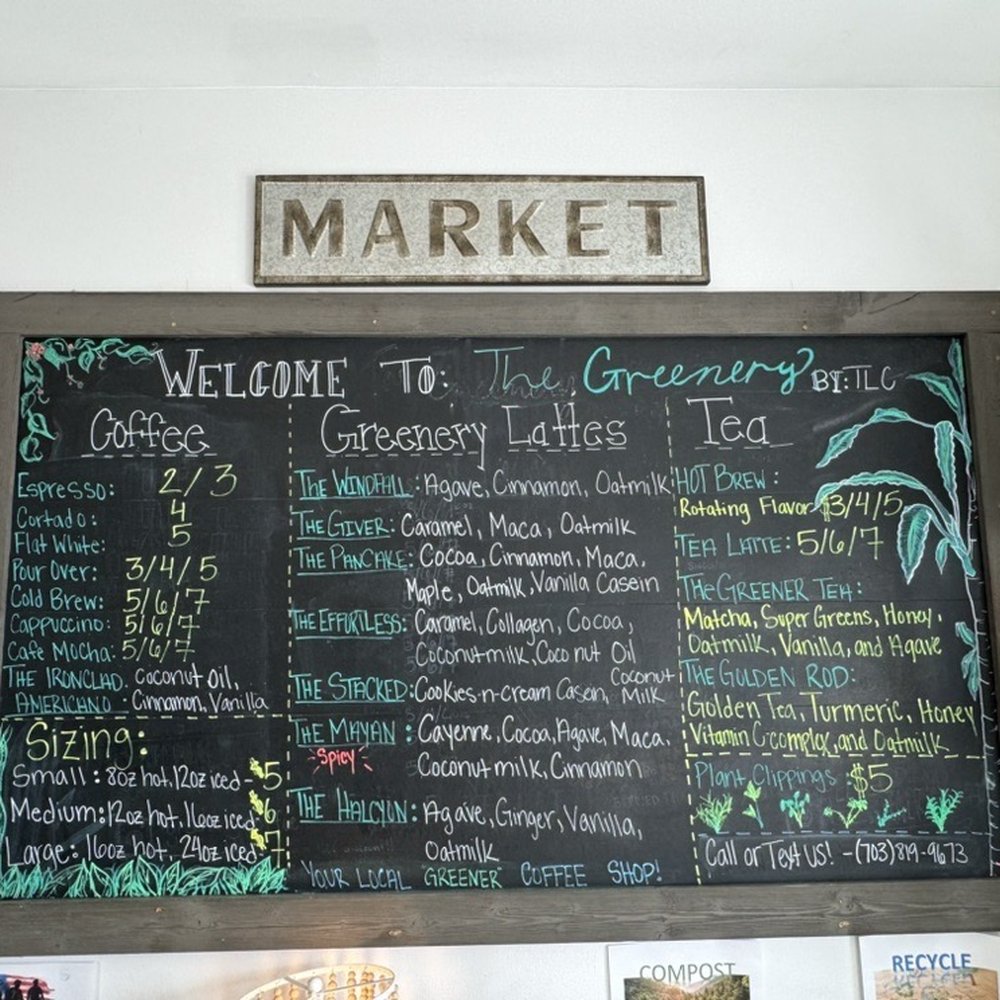 MARKET
WELCOME TO: The Greenery BY: TLC
Coffee
Espresso: 2/3
Cortado: 4
Flat White: 5
Pour Over: 3/4/5
Cold Brew: 5/6/7
Cappuccino: 5/6/7
Cafe Mocha: 5/6/7
THE IRONCLAD Coconut Oil,
AMERICANO: Cinnamon, Vanilla
Sizing:
Small: 8oz hot, 12oz iced - $5
Medium: 12oz hot, 16oz iced - $6
Large: 16oz hot, 24oz iced - $7
Greenery Lattes
THE WINDFALL: Agave, Cinnamon, Oatmilk
THE GIVER: Caramel, Maca, Oatmilk
THE PANCAKE: Cocoa, Cinnamon, Maca,
Maple, Oatmilk, Vanilla Casein
THE EFFORTLESS: Caramel, Collagen, Cocoa,
Coconutmilk, Coconut Oil
THE STACKED: Cookies-n-cream Casein, Coconut Milk
THE MAYAN: Cayenne, Cocoa, Agave, Maca,
Spicy Coconutmilk, Cinnamon
THE HALCYON: Agave, Ginger, Vanilla,
Oatmilk
YOUR LOCAL "GREENER" COFFEE SHOP!
Tea
HOT BREW:
Rotating Flavor $3/4/5
TEA LATTE: 5/6/7
THE GREENER TEA:
Matcha, Super Greens, Honey,
Oatmilk, Vanilla, and Agave
THE GOLDEN ROD:
Golden Tea, Turmeric, Honey
Vitamin C-complex, and Oatmilk
Plant Clippings $5
Call or Text US! - (703)819-9673
COMPOST
RECYCLE